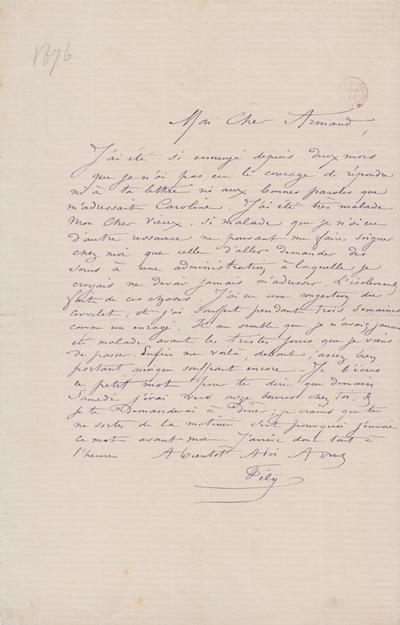 1876
Mon Cher Armand,
J'ai été si ennuyé depuis deux mois
que je n'ai pas eu le courage de répondre
ni à ta lettre ni aux bonnes paroles que
m'adressait Caroline. J'ai été très malade
Mon Cher Vieux, si malade que je n'ai eu
d'autre ressource ne pouvant me faire soigner
chez moi que celle d'aller demander des
soins à une administration à laquelle je
croyais ne devoir jamais m'adresser. L'isolement
fait de ces choses. J'ai eu une congestion du
cervelet, et j'ai souffert pendant trois semaines
comme un enragé. Il me semble que je n'avais jamais
été malade avant les tristes jours que je viens
de passer. Enfin me voilà, debout, assez bien
portant quoique souffrant encore – Je t'écris
ce petit mot pour te dire que demain
Samedi j'irai vers onze heures chez toi, &
je te demanderai à Dîner, je crains que tu
ne sortes de la matinée c'est pourquoi j'envoie
ce mot avant moi. J'arrive donc tout à
l'heure. A bientôt A toi A vous
Fély